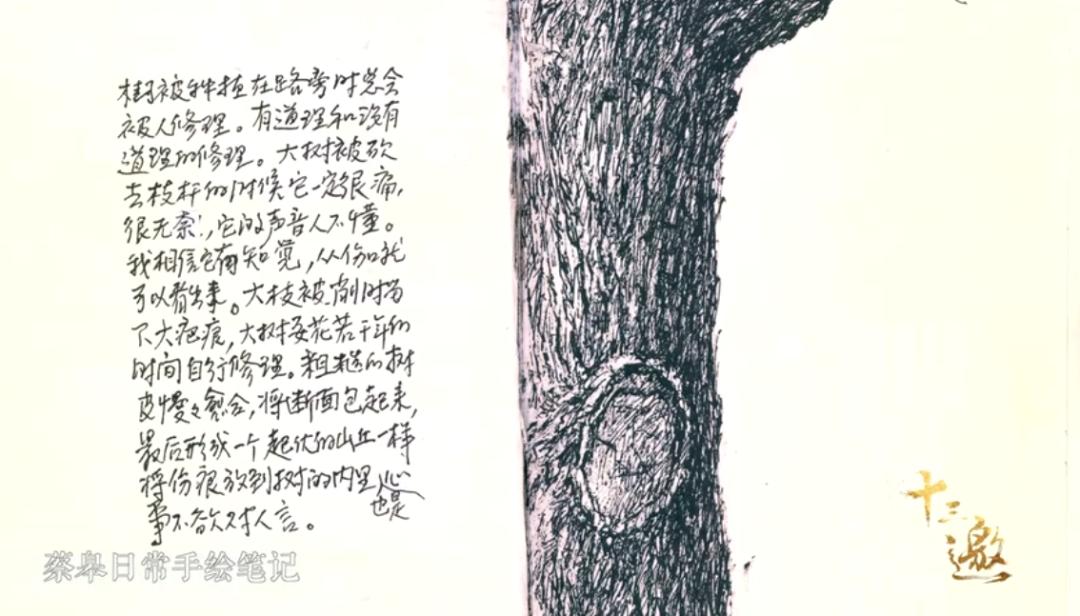 树被种植在路旁时总会
被人修理。有道理和没有
道理的修理。大树被砍
去枝杆的时候它一定很痛,
很无奈!,它的声音人不懂。
我相信它有知觉,从伤口就
可以看出来。大枝被削时留
下大疤痕,大树要花若干年的
时间自行修理。粗糙的树
皮慢々愈合,将断面包起来,
最后形成一个起伏的山丘一样
将伤痕放到树的内里心
也是
事不欲对人言。
蔡皋日常手绘笔记
十三
邀